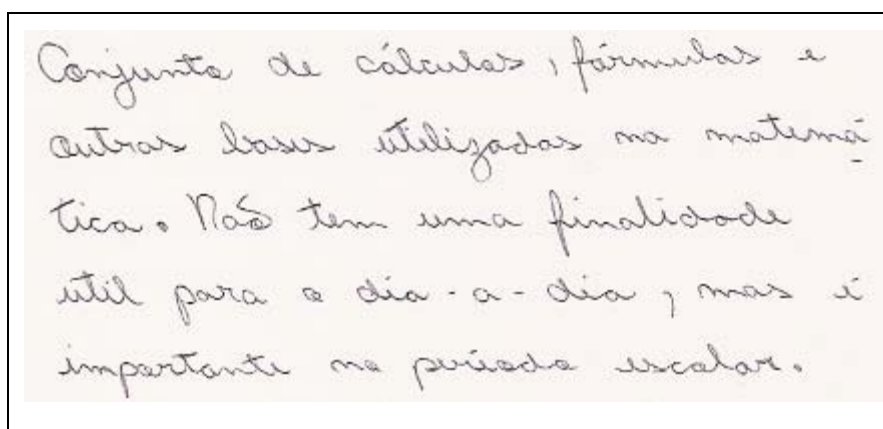 Conjunto de cálculos, fórmulas e
outras bases utilizadas na matemá
tica. Não tem uma finalidade
útil para o dia-a-dia, mas é
importante no período escolar.